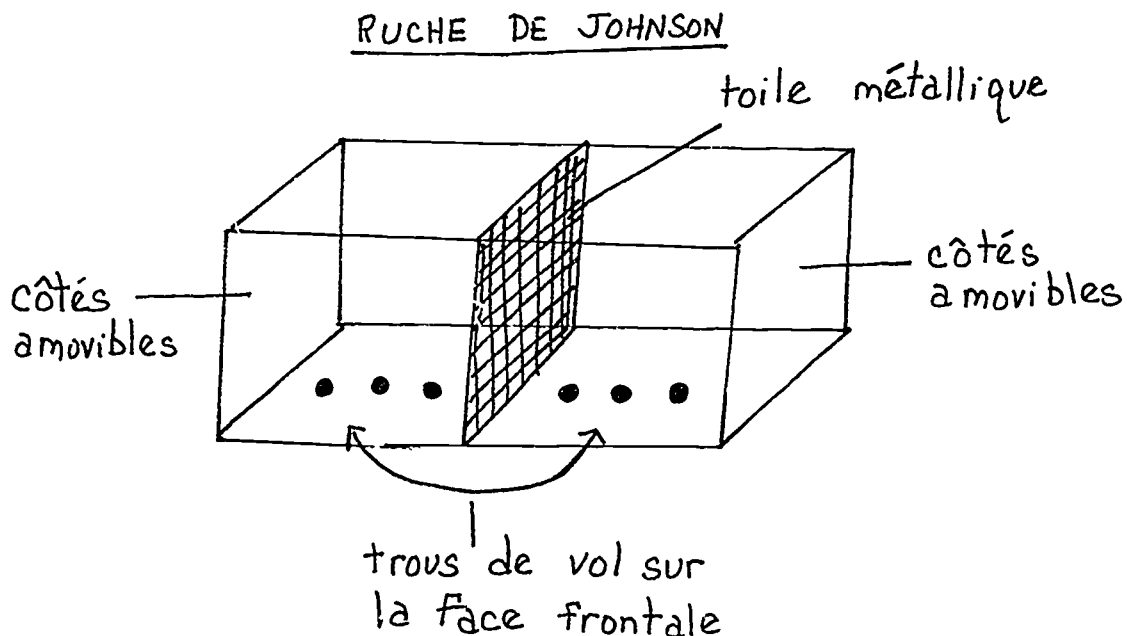 RUCHE DE JOHNSON
toile métallique
côtés
amovibles
côtés
amovibles
trous de vol sur
la face frontale